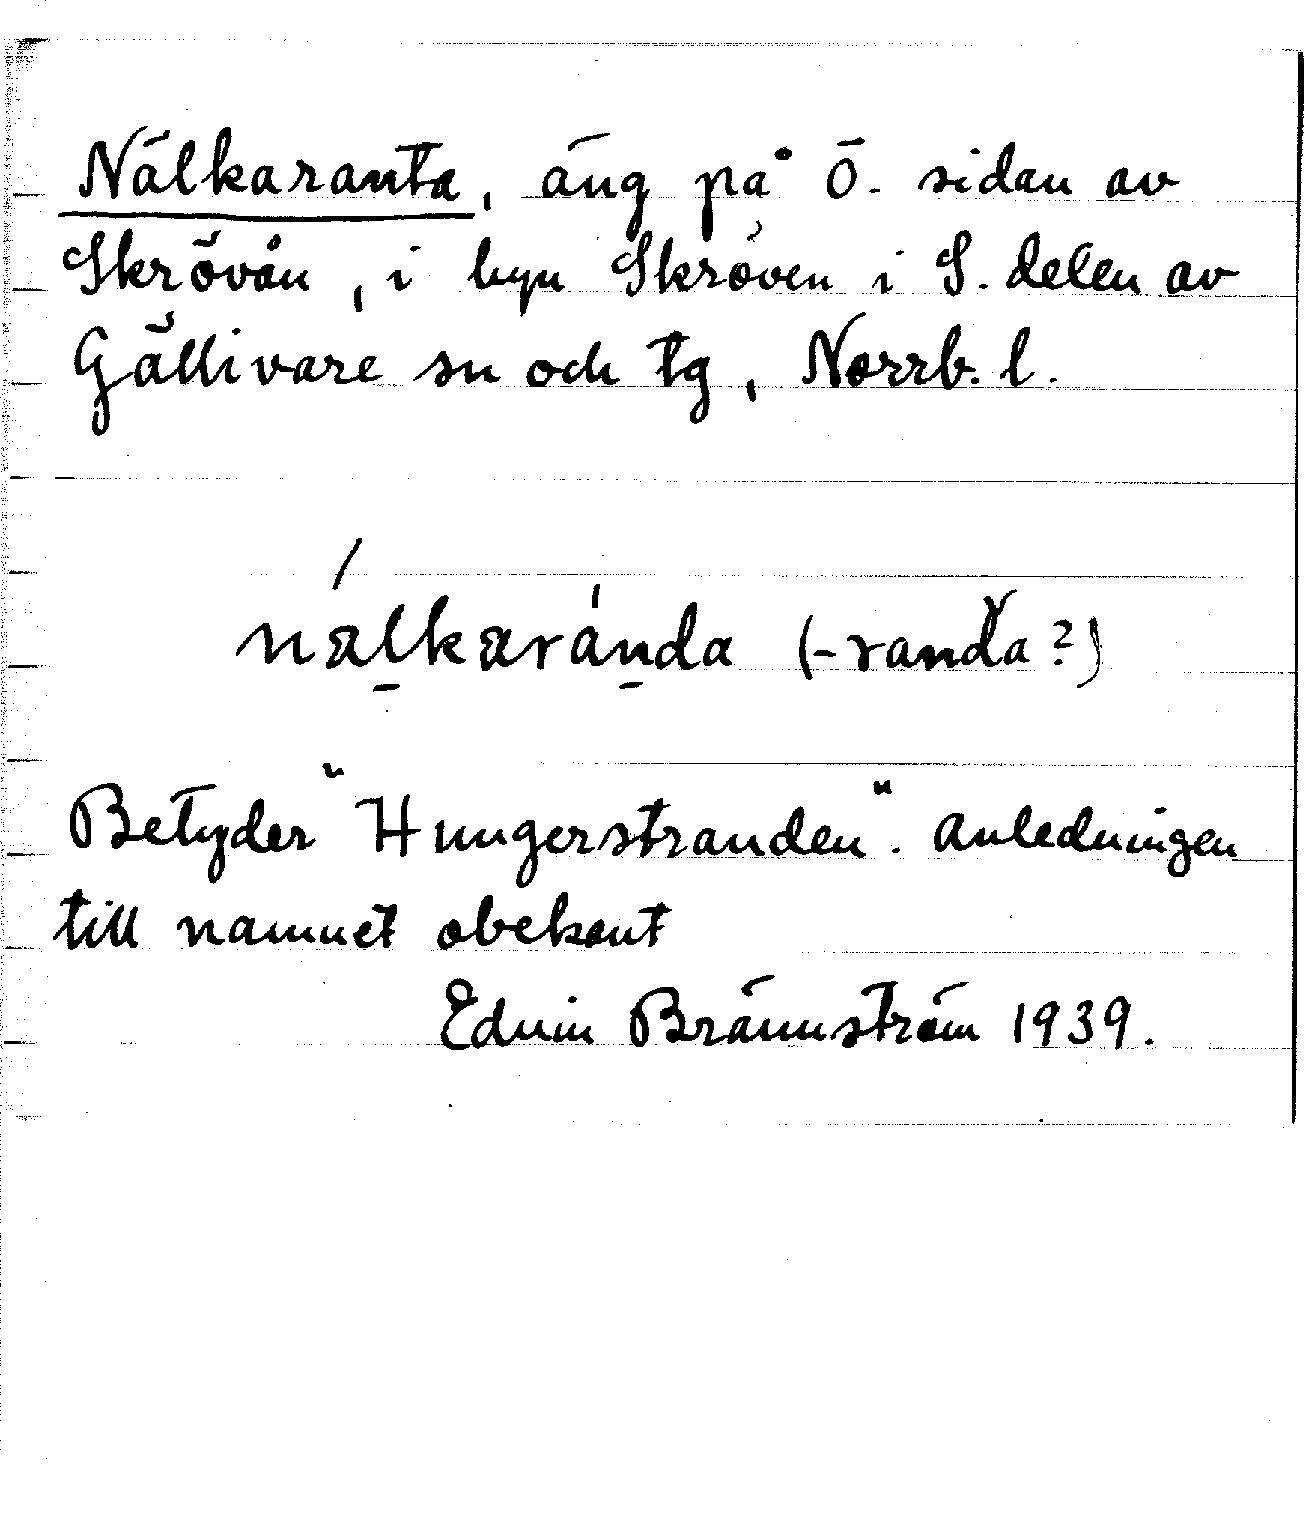 Nälkaranta, äng på Ö. sidan av
Skrövån, i byn Skröven i S. delen av
Gällivare sn och tg, Norrb. l.
nälkaránda (-randa?)
Betyder "Hungerstranden". Anledningen
till namnet obekant
Edvin Brännström 1939.